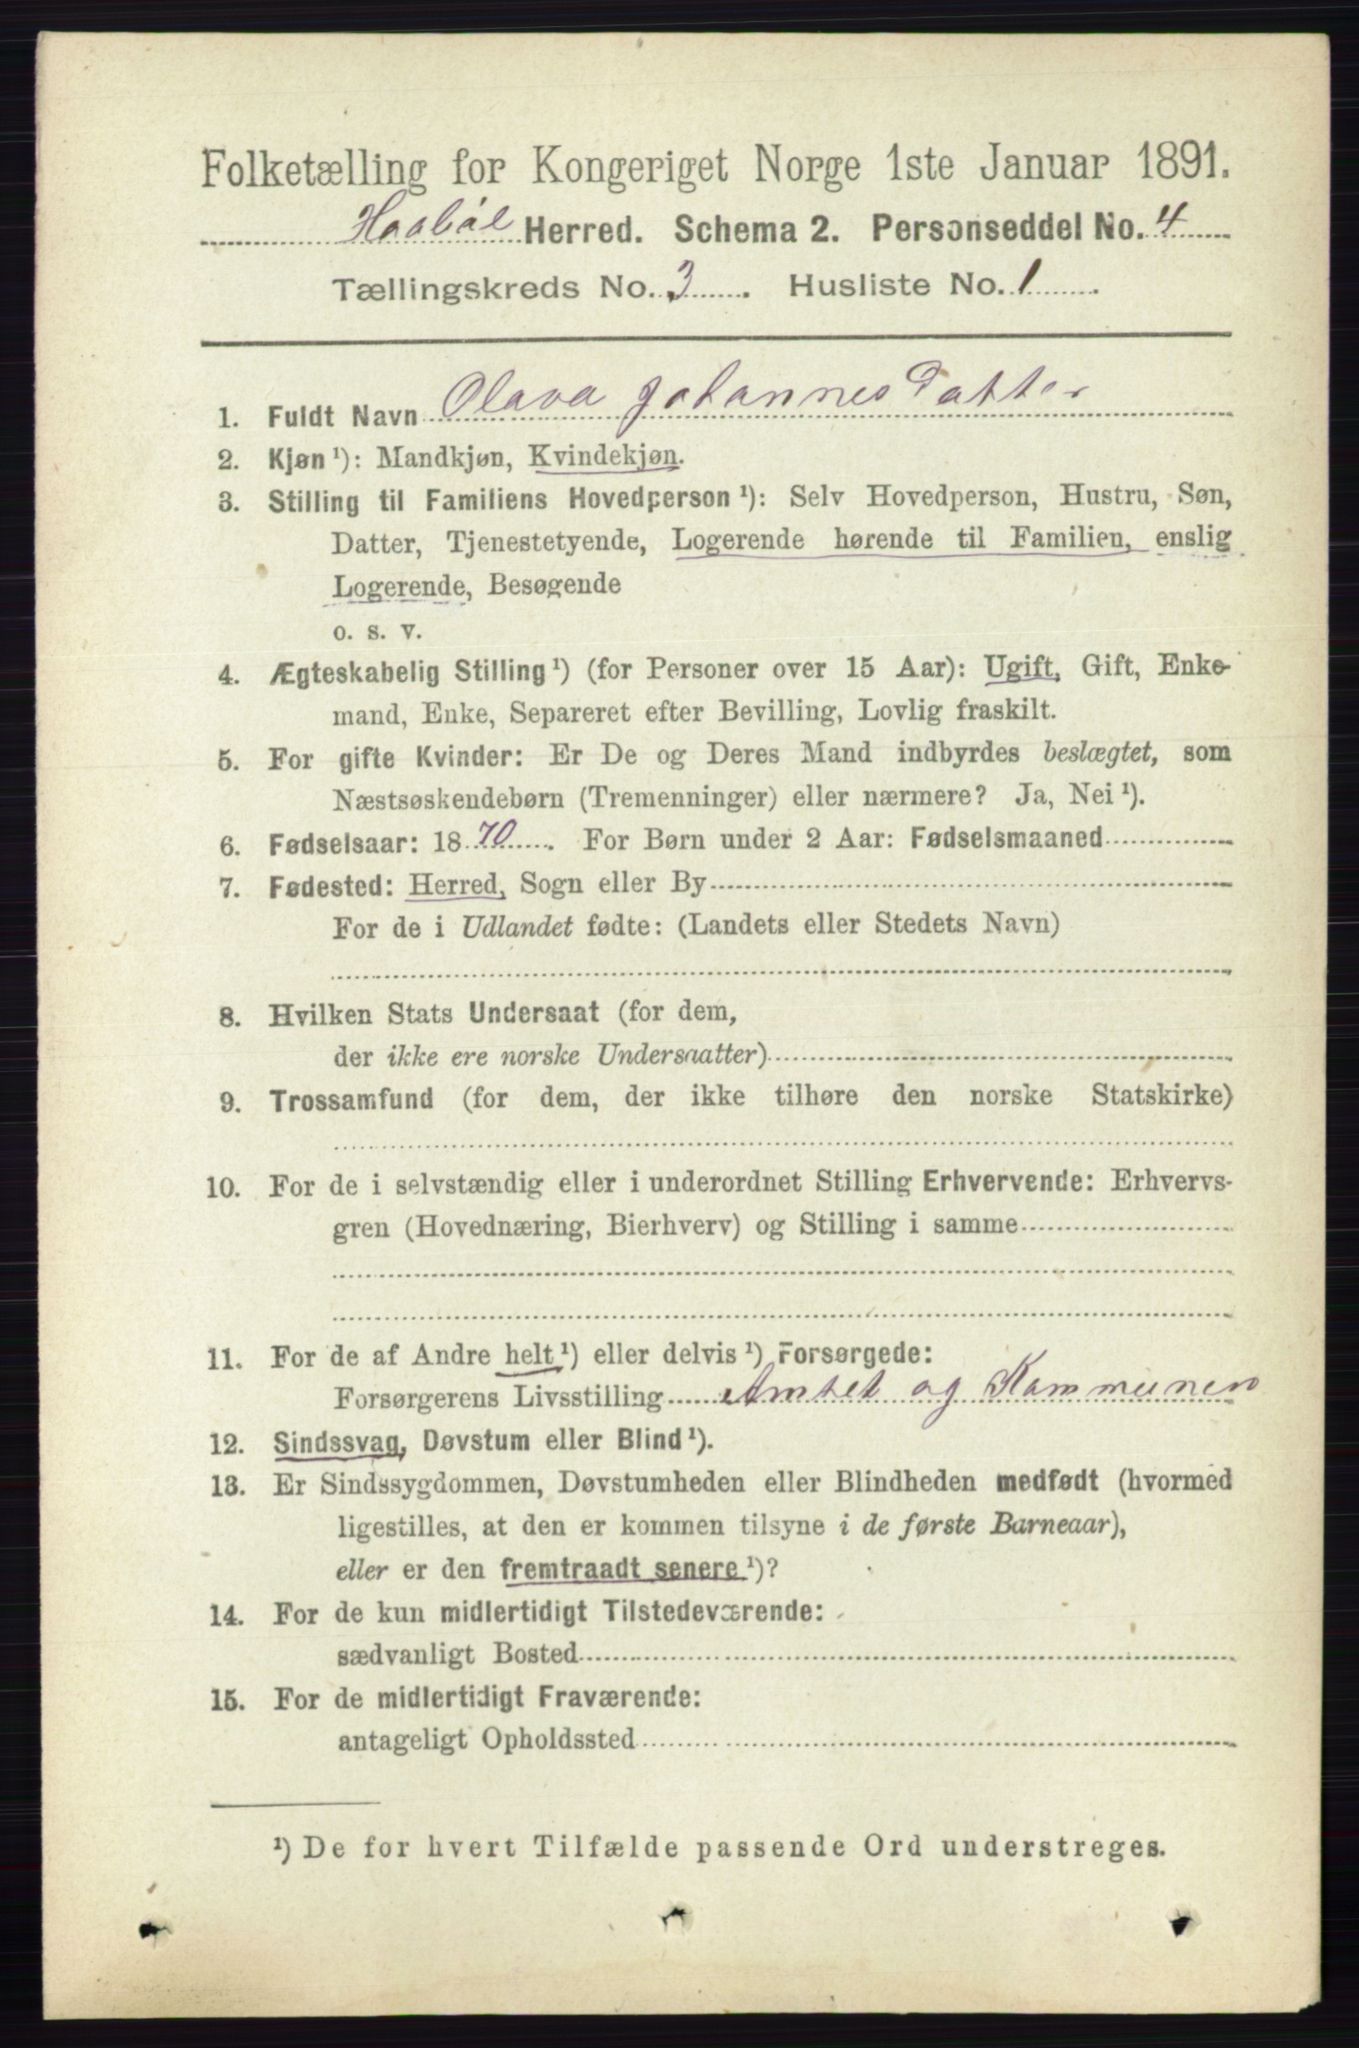 Folketælling for Kongeriget Norge 1ste Januar 1891.
Haabøl Herred. Schema 2. Personseddel No. 4
Tællingskreds No. 3. Husliste No. 1.
1. Fuldt Navn Olava Johannesdatter
2. Kjøn ¹): Mandkjøn, Kvindekjøn.
3. Stilling til Familiens Hovedperson ¹): Selv Hovedperson, Hustru, Søn,
Datter, Tjenestetyende, Logerende hørende til Familien, enslig
Logerende, Besøgende
o. s. v.
4. Ægteskabelig Stilling ¹) (for Personer over 15 Aar): Ugift, Gift, Enke-
mand, Enke, Separeret efter Bevilling, Lovlig fraskilt.
5. For gifte Kvinder: Er De og Deres Mand indbyrdes beslægtet, som
Næstsøskendebørn (Tremenninger) eller nærmere? Ja, Nei ¹).
6. Fødselsaar: 1870. For Børn under 2 Aar: Fødselsmaaned
7. Fødested: Herred, Sogn eller By
For de i Udlandet fødte: (Landets eller Stedets Navn)
8. Hvilken Stats Undersaat (for dem,
der ikke ere norske Undersaatter)
9. Trossamfund (for dem, der ikke tilhøre den norske Statskirke)
10. For de i selvstændig eller i underordnet Stilling Erhvervende: Erhvervs-
gren (Hovednæring, Bierhverv) og Stilling i samme
11. For de af Andre helt ¹) eller delvis ¹) Forsørgede:
Forsørgerens Livsstilling Amtet og Kommunen
12. Sindssvag, Døvstum eller Blind ¹).
13. Er Sindssygdommen, Døvstumheden eller Blindheden medfødt (hvormed
ligestilles, at den er kommen tilsyne i de første Barneaar),
eller er den fremtraadt senere ¹)?
14. For de kun midlertidigt Tilstedeværende:
sædvanligt Bosted
15. For de midlertidigt Fraværende:
antageligt Opholdssted
¹) De for hvert Tilfælde passende Ord understreges.